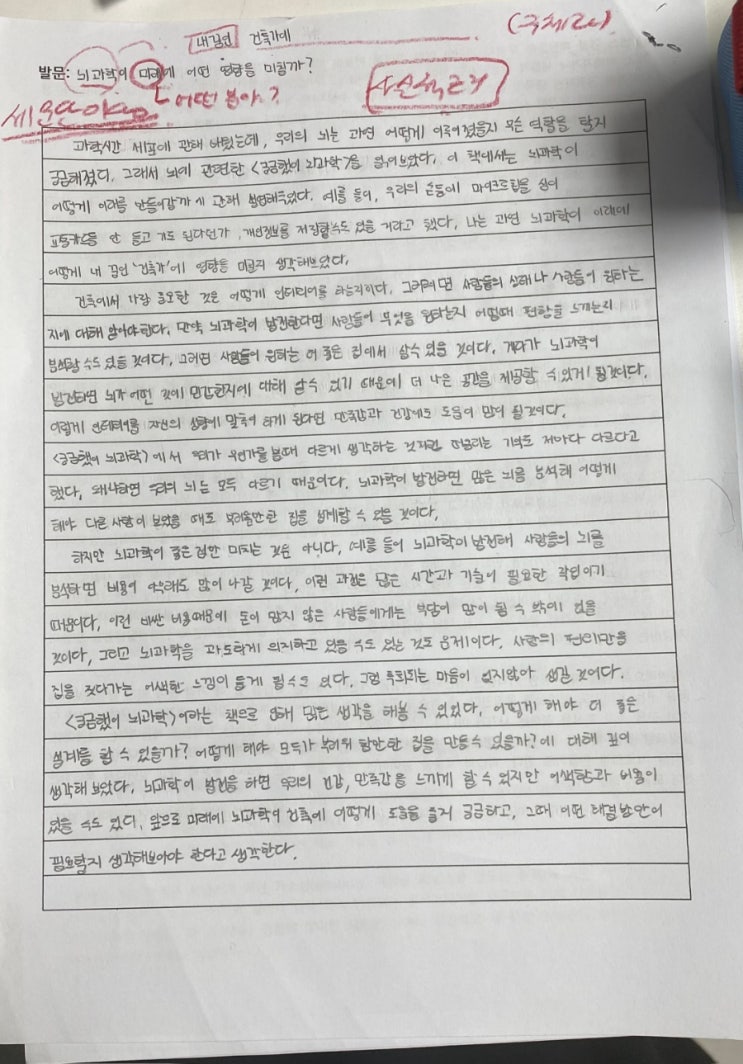 내꿈인 건축가에 (구체적)
발문: 뇌과학이 미래에 어떤 영향을 미칠까?
어떤 분야?
과학시간 세포에 관해 배웠는데, 우리의 뇌는 과연 어떻게 이루어졌을지 무슨 역할을 할지
궁금해졌다. 그래서 뇌에 관련한 <궁금했어 뇌과학>을 읽어보았다. 이 책에서는 뇌과학이
어떻게 미래를 만들어갈까 에 관해 설명해주었다. 예를 들어, 우리의 손등에 마이크로칩을 심어
교통카드를 안 들고 가도 된다던가, 개인정보를 저장할수도 있을 거라고 했다. 나는 과연 뇌과학이 미래에
어떻게 내 꿈인 '건축가'에 영향을 미칠지 생각해보았다.
건축에서 가장 중요한 것은 어떻게 인테리어를 하는지이다. 그러려면 사람들의 상태나 사람들이 원하는
지에 대해 알아야한다. 만약 뇌과학이 발전한다면 사람들이 무엇을 원하는지 어떨때 편함을 느끼는지
분석할 수도 있을 것이다. 그러면 사람들이 원하는 더 좋은 집에서 살수 있을 것이다. 게다가 뇌과학이
발전하면 뇌가 어떤 것에 민감한지에 대해 알수 있기 때문에 더 나은 공간을 제공할 수 있게 될것이다.
이렇게 인테리어를 자신의 상황에 맞추어 하게 된다면 만족감과 건강에도 도움이 많이 될것이다.
<궁금했어 뇌과학>에서 우리가 무언가를 볼때 다르게 생각하는 것처럼 떠올리는 기억도 저마다 다르다고
했다. 왜냐하면 우리의 뇌는 모두 다르기 때문이다. 뇌과학이 발전하면 많은 뇌를 분석해 어떻게
해야 다른 사람이 보았을 때도 부러울만한 집을 설계할 수 있을 것이다.
하지만 뇌과학이 좋은 점만 미치는 것은 아니다. 예를 들어 뇌과학이 발전해 사람들의 뇌를
분석하면 비용이 아무래도 많이 나갈 것이다. 이런 과정은 많은 시간과 기술이 필요한 작업이기
때문이다. 이런 비싼 비용때문에 돈이 많지 않은 사람들에게는 부담이 많이 될 수 밖에 없을
것이다. 그리고 뇌과학을 과도하게 의지하고 있을 수도 있는 것도 문제이다. 사람의 편의만을
집을 짓다가는 어색한 느낌이 들게 될수도 있다. 그럼 후회되는 마음이 없지않아 생길 것이다.
<궁금했어 뇌과학>이라는 책으로 인해 많은 생각을 해볼 수 있었다. 어떻게 해야 더 좋은
설계를 할 수 있을까? 어떻게 해야 모두가 누려워 할만한 집을 만들수 있을까?에 대해 깊이
생각해 보았다. 뇌과학이 발전을 하면 우리의 건강, 만족감을 느끼게 할 수 있지만 어색함과 비용이
있을 수도 있다. 앞으로 미래에 뇌과학이 건축에 어떻게 도움을 줄지 궁금하고, 그때 어떤 해결방안이
필요할지 생각해보아야 한다고 생각한다.